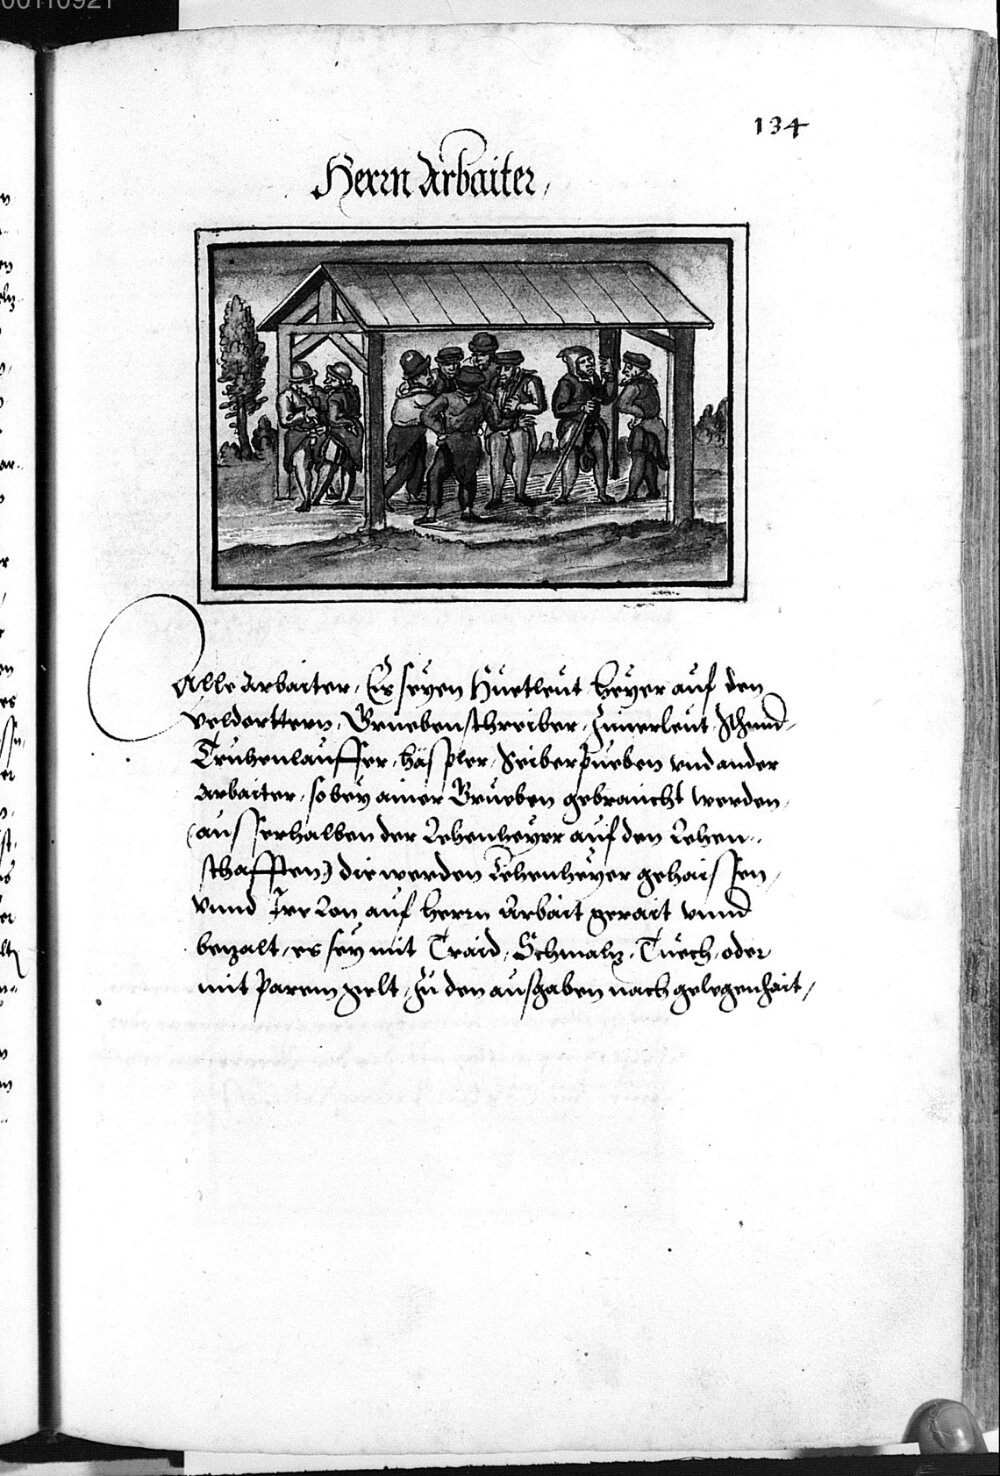 00110921
134
Herrn Arbaiter,
Alle Arbaiter, Es seyen Huetleut heyer auf den
veldorttern, Gruebenschreiber, Zimerleut, Schmid,
Truhenlauffer, häspler, Seiberpueben vnd ander
Arbaiter, so bey ainer Grueben gebraucht werden,
(ausserhalben der Lehenheyer auf den Lehen-
schafften) die werden Lehenheyer gehaissen,
vnnd Irr Lon auf herrn Arbait gerait vnnd
bezalt, es sey mit Traid, Schmalz, Tuech, oder
mit Parem gelt, Zu den ausgaben nach gelegenhait,